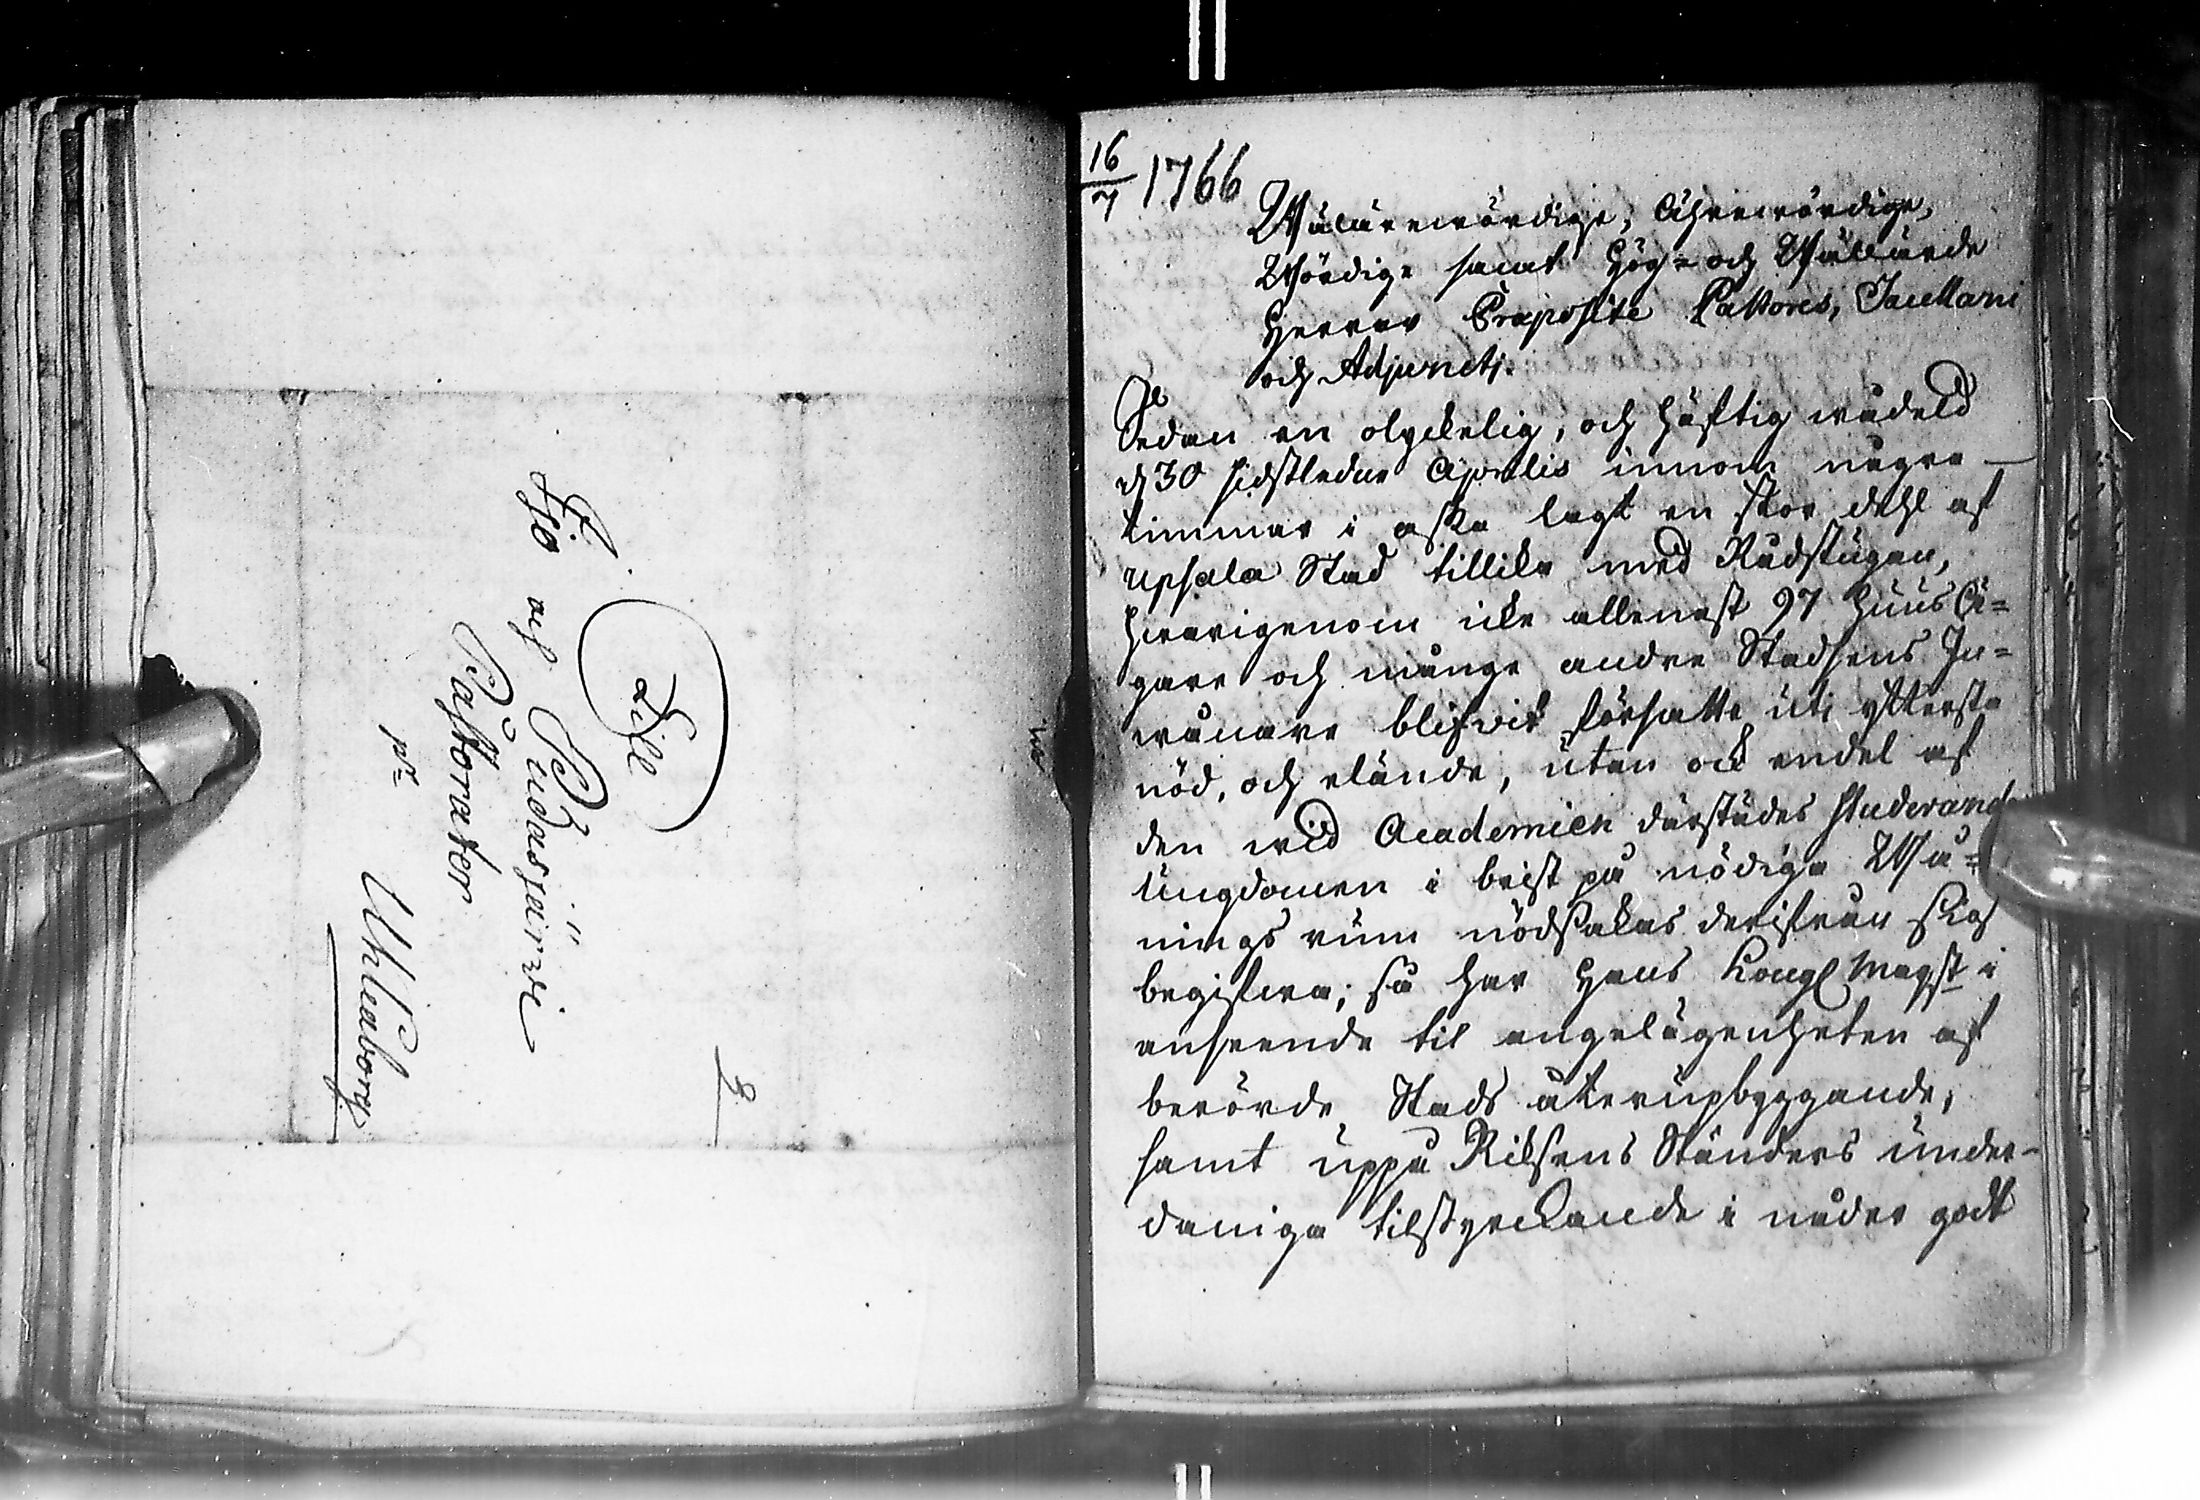 Till
Ijo och Pudasjärvi
Pastorater
pr
Uhleaborg
16/7 1766
Wälärewördige, Ährewördige,
Wördige samt Hög- och Wällärde
Herrar Præposite Pastores, Sacellani
och Adjuncti.
Sedan en olyckelig, och häftig wådeld
d 30 sidstledne Aprilis innom någre
timmar i aska lagt en stor dehl af
Upsala Stad tillika med Rådstugan,
hwarigenom icke allenast 97 Huus Ä-
gare och många andre Stadsens In-
wånare blifwit försatte uti yttersta
nöd, och elände, utan ock endel af
den wid Academien därstädes studerande
Ungdomen i brist på nödiga Wå-
nings rum nödsakas derifrån sig
begifwa; så har Hans Kongl Majst i
anseende til angelägenheten af
berörde Stads återupbyggande,
samt uppå Riksens Ständers under-
daniga tilstyrckande i nåder godt